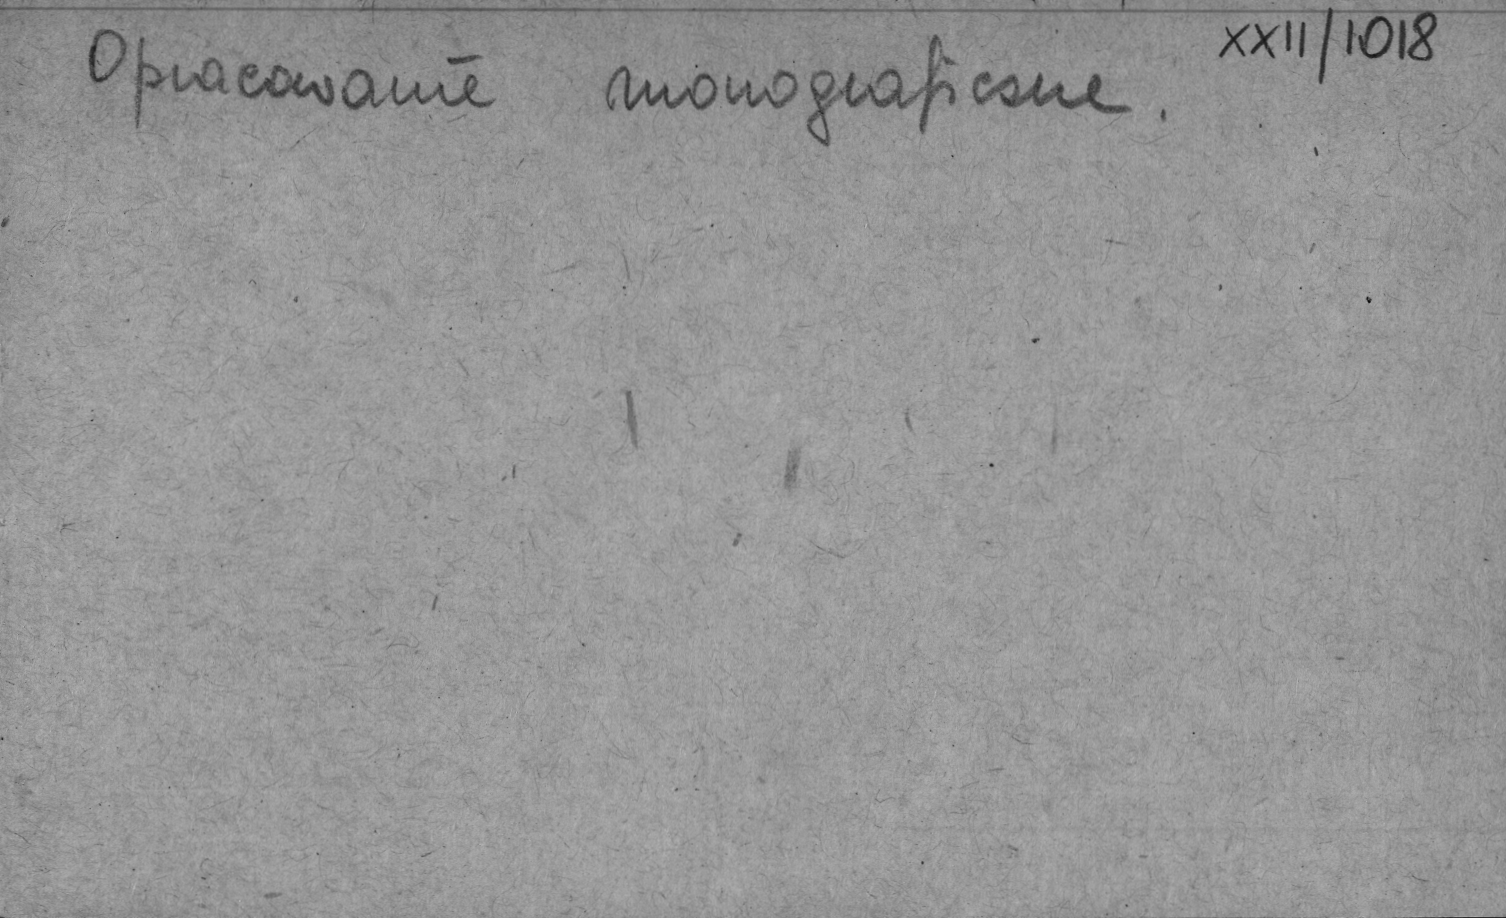 XXII/1018
Opracowanie monograficzne.